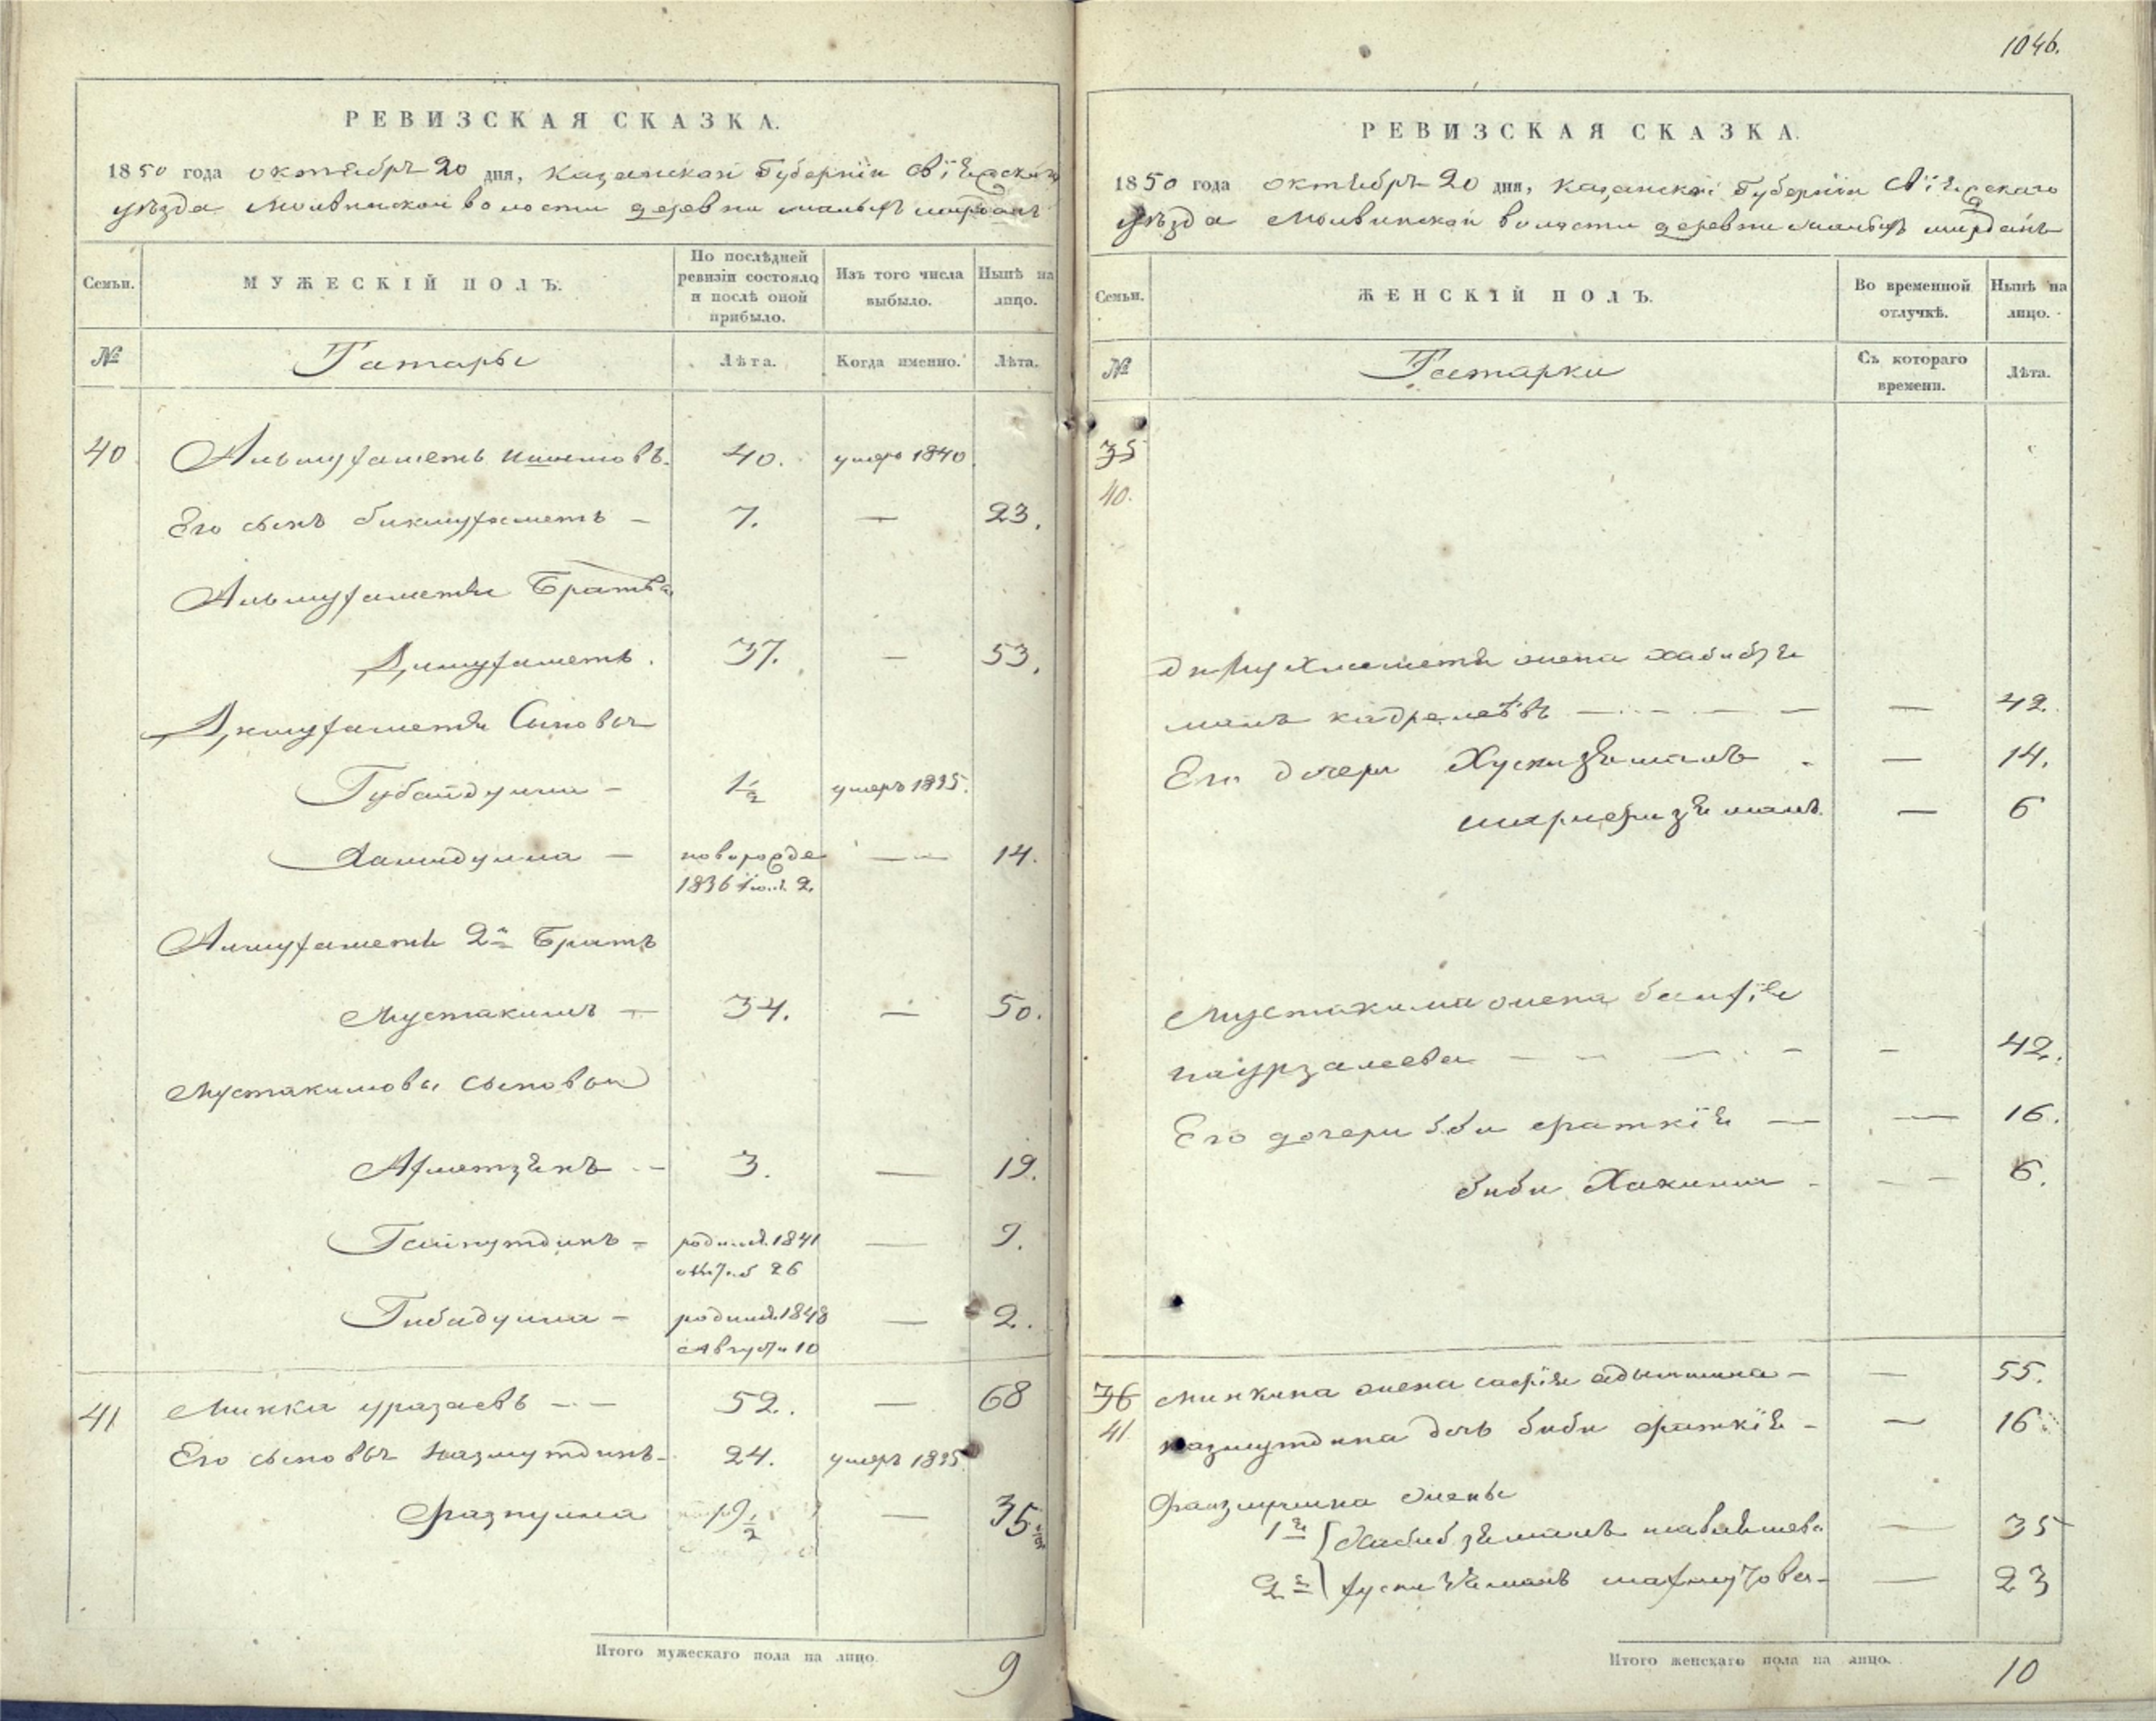 РЕВИЗСКАЯ СКАЗКА.
1850 года октября 20 дня, Казанской Губернiи Свiяжскаго
уѣзда Молвинской волости деревни малыхъ ширданъ
Семьи.
МУЖЕСКIЙ ПОЛЪ.
По послѣдней ревизiи состояло и послѣ оной прибыло.
Изъ того числа выбыло.
Нынѣ на лицо.
№
Татары
Лѣта.
Когда именно.
Лѣта.
40 Альмухаметь 40. умеръ 1840
Его сынъ бикмухаметь – 7. — 23.
Альмухаметя Братья
37. — 53.
Сыновья
Губайдулла – 1 1/2 умеръ 1835.
Хамидулла – новорожде — 14.
1836 2.
Алмухаметя 2й Братъ
Мустакимъ — 34. — 50.
Мустакимовы сыновья
Ахметзянъ – 3. — 19.
Гайнутдинъ – родился 1841 — 9.
26
Гибадулла – родился 1848 — 2.
Августа 10
41 Минка уразаевъ – – 52. — 68
Его сыновья Назмутдинъ – 24. умеръ 1835
Фазнулла 19 1/2 — 35
Итого мужескаго пола на лицо. 9
1046.
РЕВИЗСКАЯ СКАЗКА.
1850 года октября 20 дня, Казанской Губернiи Свiяжскаго
уѣзда Молвинской волости деревни малыхъ ширданъ
Семьи.
ЖЕНСКIЙ ПОЛЪ.
Во временной отлучкѣ.
Нынѣ на лицо.
№
Татарки
Съ котораго времени.
Лѣта.
35
40.
жена хабибзя
малъ — 42.
Его дочери Хуснизямалъ – — 14.
— 6
Мустакима жена
— — 42.
Его дочери биби фаткiя — — 16.
биби Хакима – — 6.
36 Минкина жена сафiя адылшина – — 55.
41 назмутдина дочь биби фаткiя – — 16
жены
1я Хабибзямалъ — 35
2я хуснизямалъ махмутова – — 23
Итого женскаго пола на лицо. 10